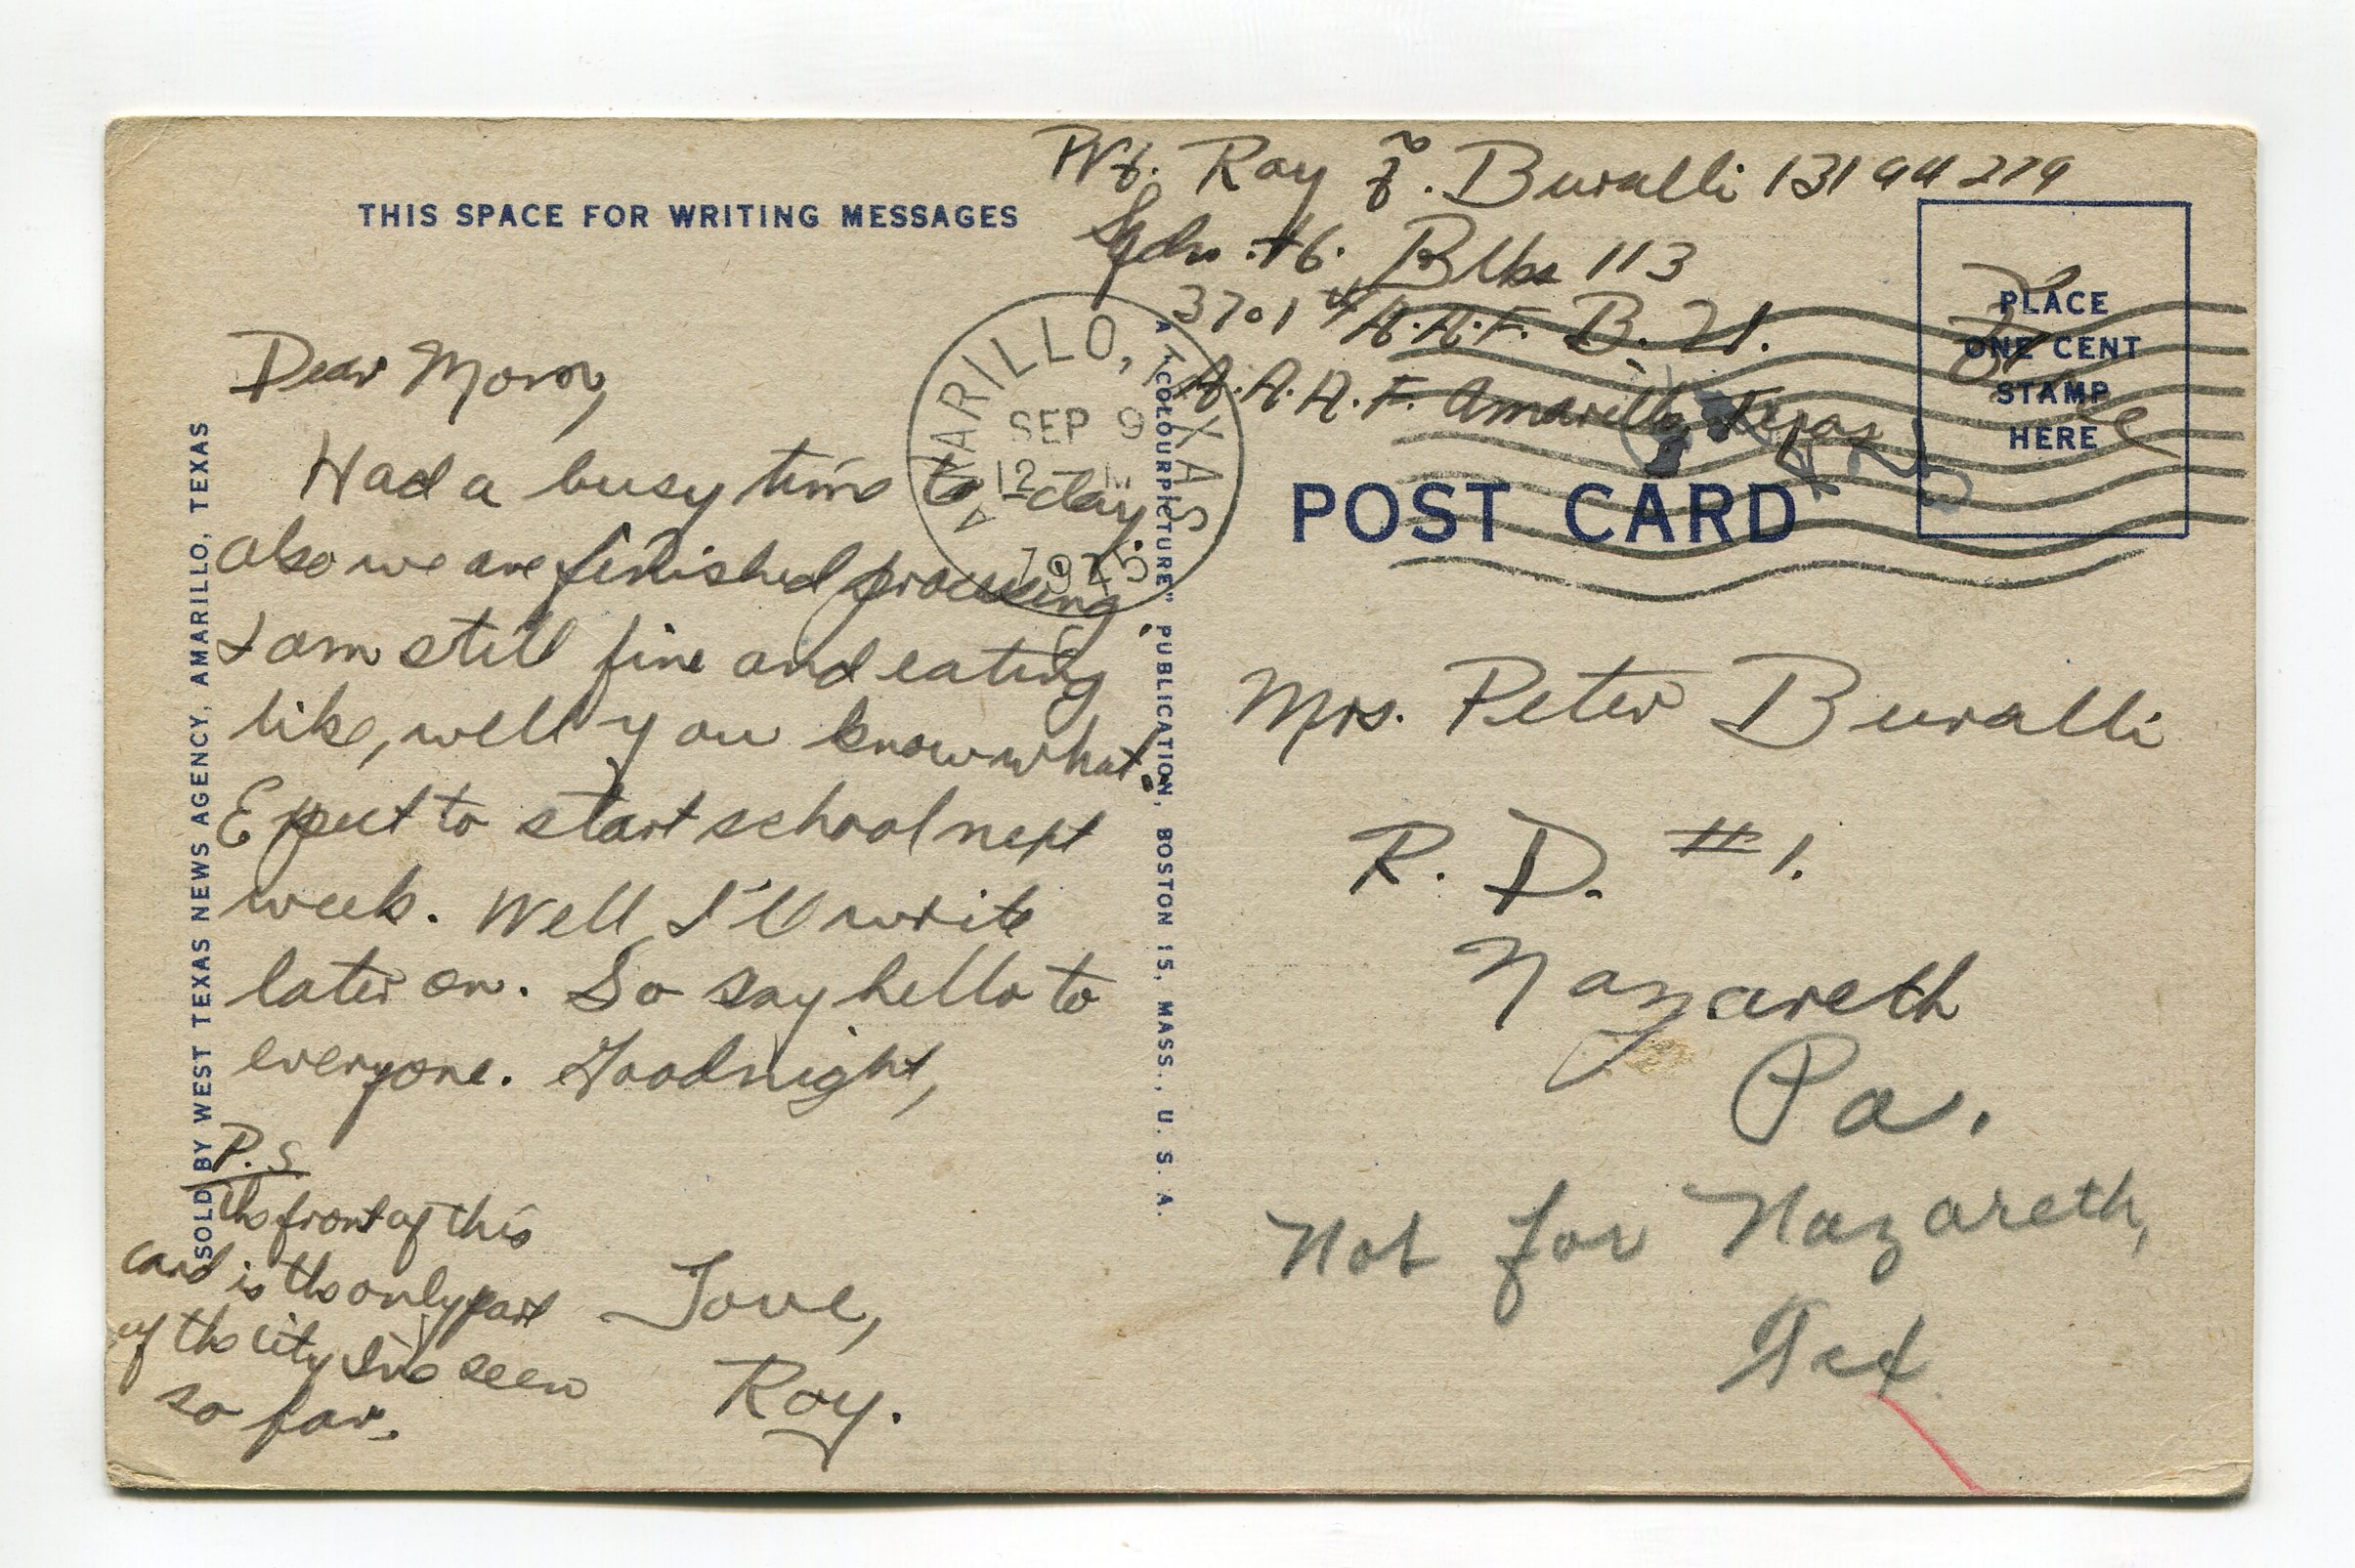 THIS SPACE FOR WRITING MESSAGES
Pvt. Roy F. Buralli 13194279
Sqdn. #6. Blks 113
3701st A.A.F. B.U.
A.A.A.F. Amarillo, Texas
AMARILLO, TEXAS
SEP 9
12 M
1945
PLACE
ONE CENT
STAMP
HERE
Free
POST CARD
Dear Mom,
Had a busy time to-day.
also we are finished processing.
I am still fine and eating
like, well you know what.
Expect to start school next
week. Well I'll write
later on. So say hello to
everyone. Goodnight,
Love,
Roy.
P.S
The front of this
card is the only part
of the city I've seen
so far.
SOLD BY WEST TEXAS NEWS AGENCY, AMARILLO, TEXAS
A "COLOURPICTURE" PUBLICATION, BOSTON 15, MASS., U. S. A.
Mrs. Peter Buralli
R. D. #1.
Nazareth
Pa.
Not for Nazareth,
Tex